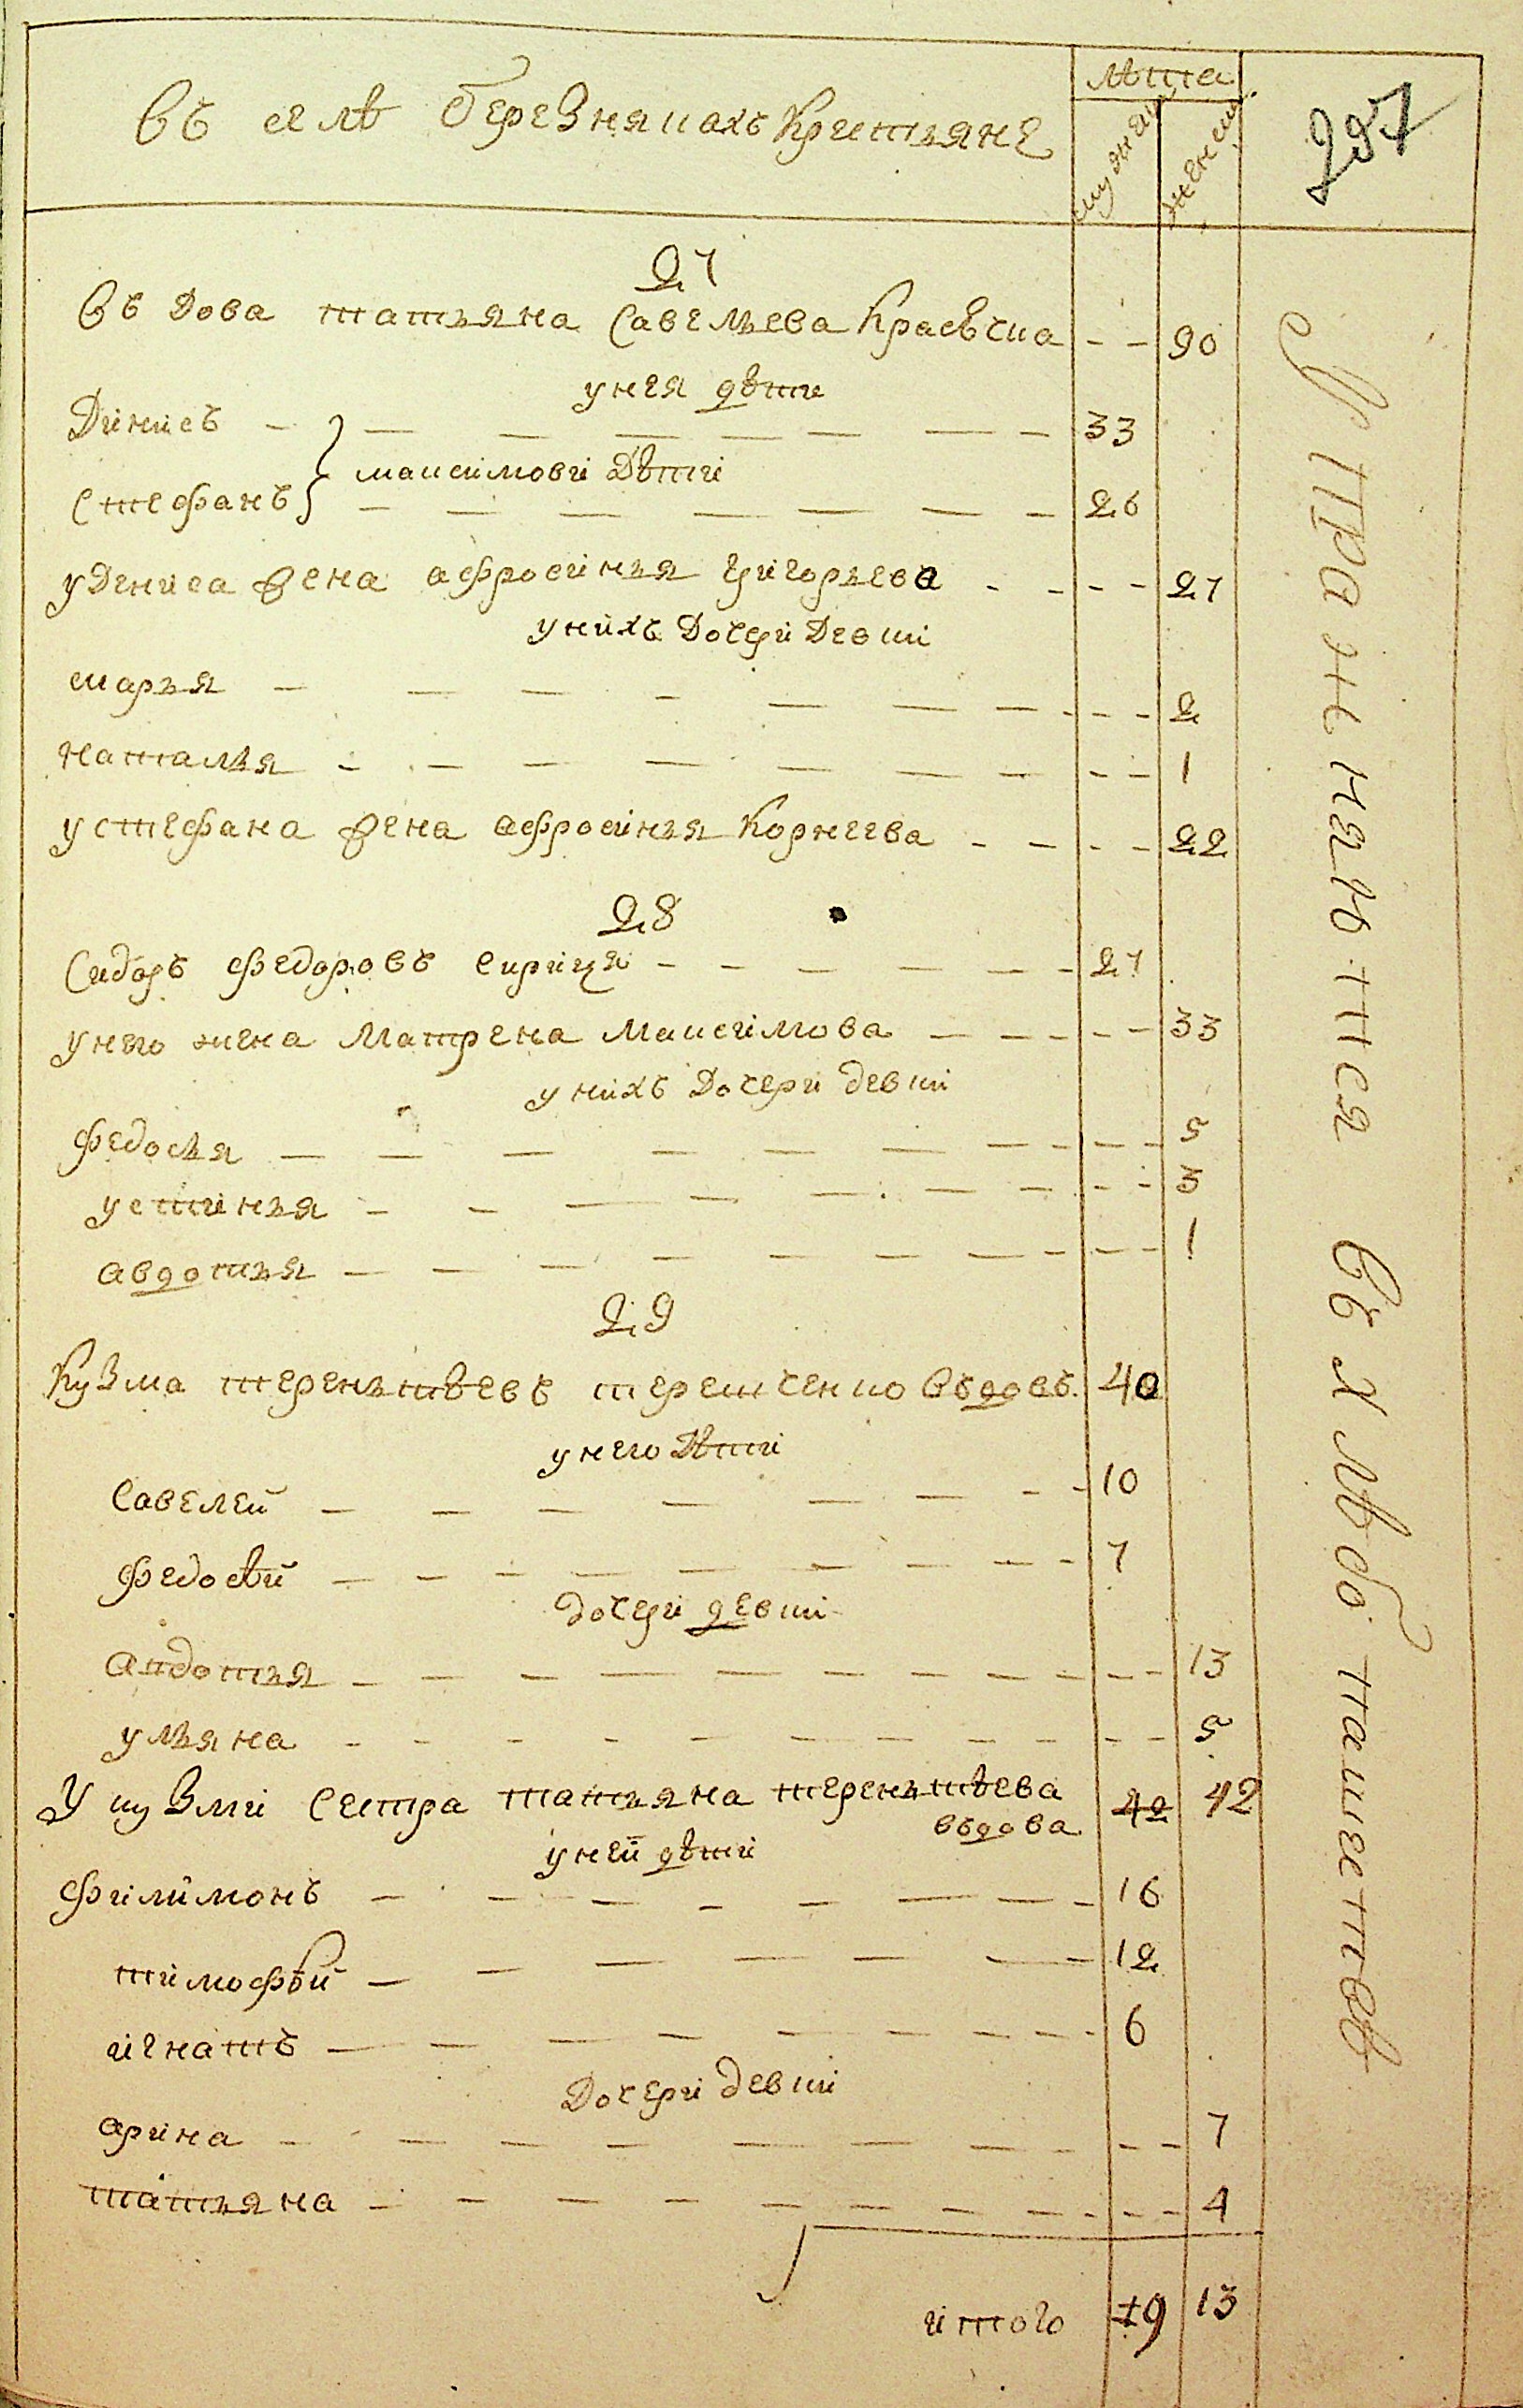 въ селѣ березнякахъ крестьяне
лѣта
мужеи
женеи
297
27
въдова татьяна савельева краевска 90
у нея дѣти
Динисъ 33
максимови дѣти
стефанъ 26
у дениса жена афросинья григорьева 27
у нихъ дочери девки
марья 2
наталья 1
у стефана жена афросинья корнеева 22
28
сидоръ федоровъ 27
у него жена матрена максимова 33
у нихъ дочери девки
федосья 5
устинья 3
авдотья 1
29
кузма терентьевъ терещенко въдовъ 40
у него дѣти
савелей 10
федосѣй 7
дочери девки
авдотья 13
ульяна 5
у кузми сестра татьяна терентьева 42 42
въдова
у неи дѣти
филимонъ 16
тимофѣй 12
игнатъ 6
дочери девки
арина 7
татьяна 4
итого 9 13
упражняются въ хлѣбопашествѣ